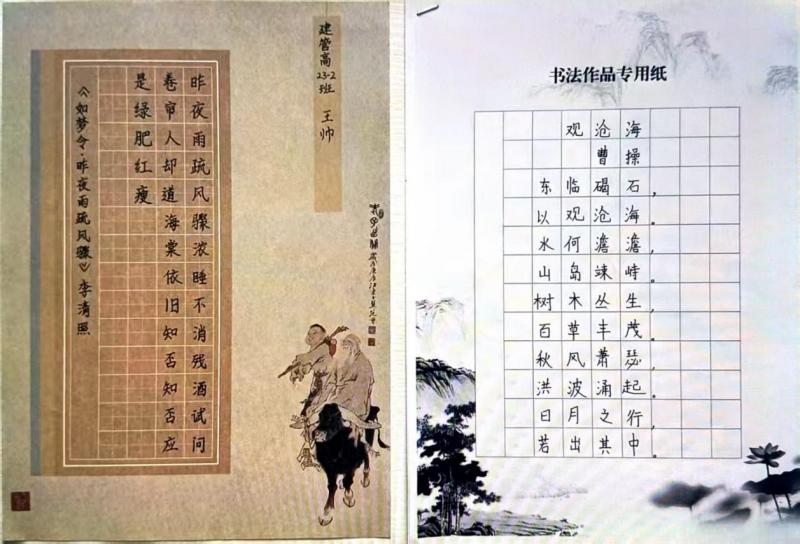 建管高23-2班 王帅
昨夜雨疏风骤浓睡不消残酒试问
卷帘人却道海棠依旧知否知否应
是绿肥红瘦
《如梦令·昨夜雨疏风骤》李清照
书法作品专用纸
观沧海
曹操
东临碣石，
以观沧海。
水何澹澹，
山岛竦峙。
树木丛生，
百草丰茂。
秋风萧瑟，
洪波涌起。
日月之行，
若出其中。